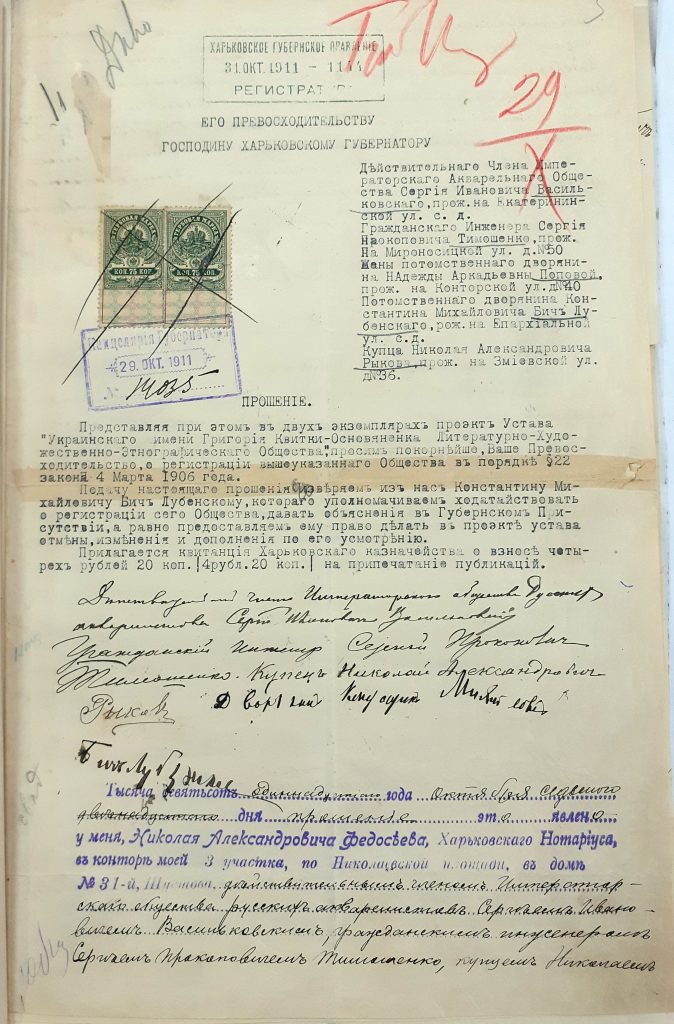 ХАРЬКОВСКОЕ ГУБЕРНСКОЕ ПРАВЛЕНІЕ
31.ОКТ.1911 – 11
РЕГИСТРАТ
29
X
ЕГО ПРЕВОСХОДИТЕЛЬСТВУ
ГОСПОДИНУ ХАРЬКОВСКОМУ ГУБЕРНАТОРУ
Дѣйствительнаго Члена Импе-
раторскаго Акварельнаго Обще-
ства Сергія Ивановича Василь-
ковскаго, прож. на Екатеринин-
ской ул. с. д.
Гражданскаго Инженера Сергія
Прокоповича Тимошенко, прож.
На Мироносицкой ул. д.№50
Жены потомственнаго дворяни-
на НАдежды Аркадьевны Поповой,
прож. на Конторской ул.д№40
Потомственнаго дворянина Кон-
стантина Михайловича Бич Лу-
бенскаго, рож. на Епархіальной
ул. с.д.
Купца Николая Александровича
Рыкова, прож. на Зміевской ул.
д№36.
КОП. 75 КОП. КОП. 75 КОП.
Канцелярія Губернатора
29. ОКТ. 1911
№ 14035
ПРОШЕНІЕ.
Представляя при этомъ въ двухъ экземплярахъ проэктъ Устава
"Украинскаго имени Григорія Квитки-Основяненка Литературно-Худо-
жественно-Этнографическаго Общества", просимъ покорнѣйше, Ваше Превос-
ходительство, о регистраціи вышеуказаннаго Общества въ порядкѣ §22
закона 4 Марта 1906 года.
Подачу настоящаго прошенія довѣряемъ изъ насъ Константину Ми-
хайловичу Бич Лубенскому, котораго уполномачиваемъ ходатайствовать
о регистраціи сего Общества, давать объясненія въ Губернскомъ При-
сутствіи, а равно предоставляемъ ему право дѣлать въ проэктѣ устава
отмѣны, измѣненія и дополненія по его усмотрѣнію.
Прилагается квитанція Харьковскаго казначейства о взносѣ четы-
рехъ рублей 20 коп. |4рубл. 20 коп.| на припечатаніе публикацій.
Императорскаго общества Русскихъ
акварелистовъ Сергѣй Ивановичъ Васильковскій
Гражданскій Инженеръ Сергѣй Прокоповичъ
Тимошенко. Купецъ Николай Александровичъ
Рыковъ Дворянинъ
Бичъ Лубенскій
Тысяча девятьсотъ одиннадцатаго года октября седьмого
двенадцатаго дня прошеніе это явлено
у меня, Николая Александровича Федосѣева, Харьковскаго Нотаріуса,
въ конторѣ моей 3 участка, по Николаевской площади, въ домѣ
№ 31-й, дѣйствительнымъ членомъ Император-
скаго общества русскихъ акварелистовъ Сергѣемъ Ивано-
вичемъ Васильковскимъ, гражданскимъ инженеромъ
Сергѣемъ Прокоповичемъ Тимошенко, купцемъ Николаемъ